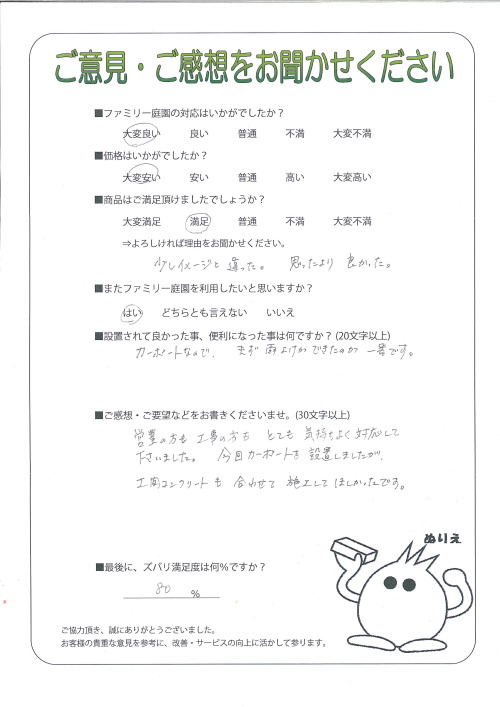 ご意見・ご感想をお聞かせください
■ファミリー庭園の対応はいかがでしたか？
大変良い 良い 普通 不満 大変不満
■価格はいかがでしたか？
大変安い 安い 普通 高い 大変高い
■商品はご満足頂けましたでしょうか？
大変満足 満足 普通 不満 大変不満
⇒よろしければ理由をお聞かせください。
少しイメージと違った。 思ったより良かった。
■またファミリー庭園を利用したいと思いますか？
はい どちらとも言えない いいえ
■設置されて良かった事、便利になった事は何ですか？(20文字以上)
カーポートなので、まず雨よけができたのが一番です。
■ご感想・ご要望などをお書きくださいませ。(30文字以上)
営業の方も工事の方もとても気持ちよく対応して
下さいました。今回カーポートを設置しましたが、
土間コンクリートも合わせて施工してほしかったです。
ぬりえ
■最後に、ズバリ満足度は何％ですか？
80 %
ご協力頂き、誠にありがとうございました。
お客様の貴重な意見を参考に、改善・サービスの向上に活かして参ります。